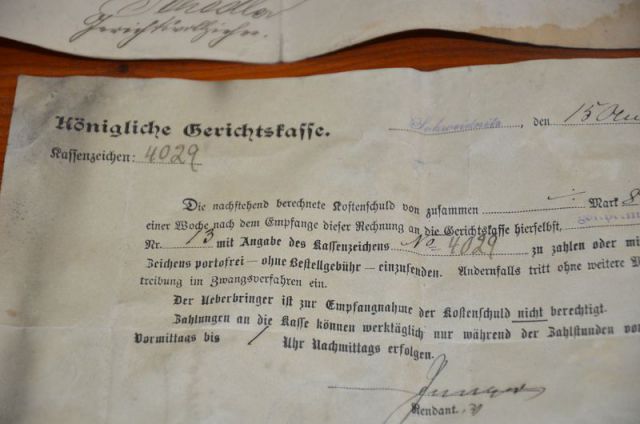 Schedler
Gerichtsvollzieher.
Königliche Gerichtskasse.
Schweidnitz, den 15
Kassenzeichen: 4029
Die nachstehend berechnete Kostenschuld von zusammen Mark 8
einer Woche nach dem Empfange dieser Rechnung an die Gerichtskasse hierselbst,
Nr. 13 mit Angabe des Kassenzeichens No 4029 zu zahlen oder mi
Zeichens portofrei — ohne Bestellgebühr — einzusenden. Andernfalls tritt ohne weitere M
treibung im Zwangsverfahren ein.
Der Ueberbringer ist zur Empfangnahme der Kostenschuld nicht berechtigt.
Zahlungen an die Kasse können werktäglich nur während der Zahlstunden vo
Vormittags bis 1 Uhr Nachmittags erfolgen.
Rendant.